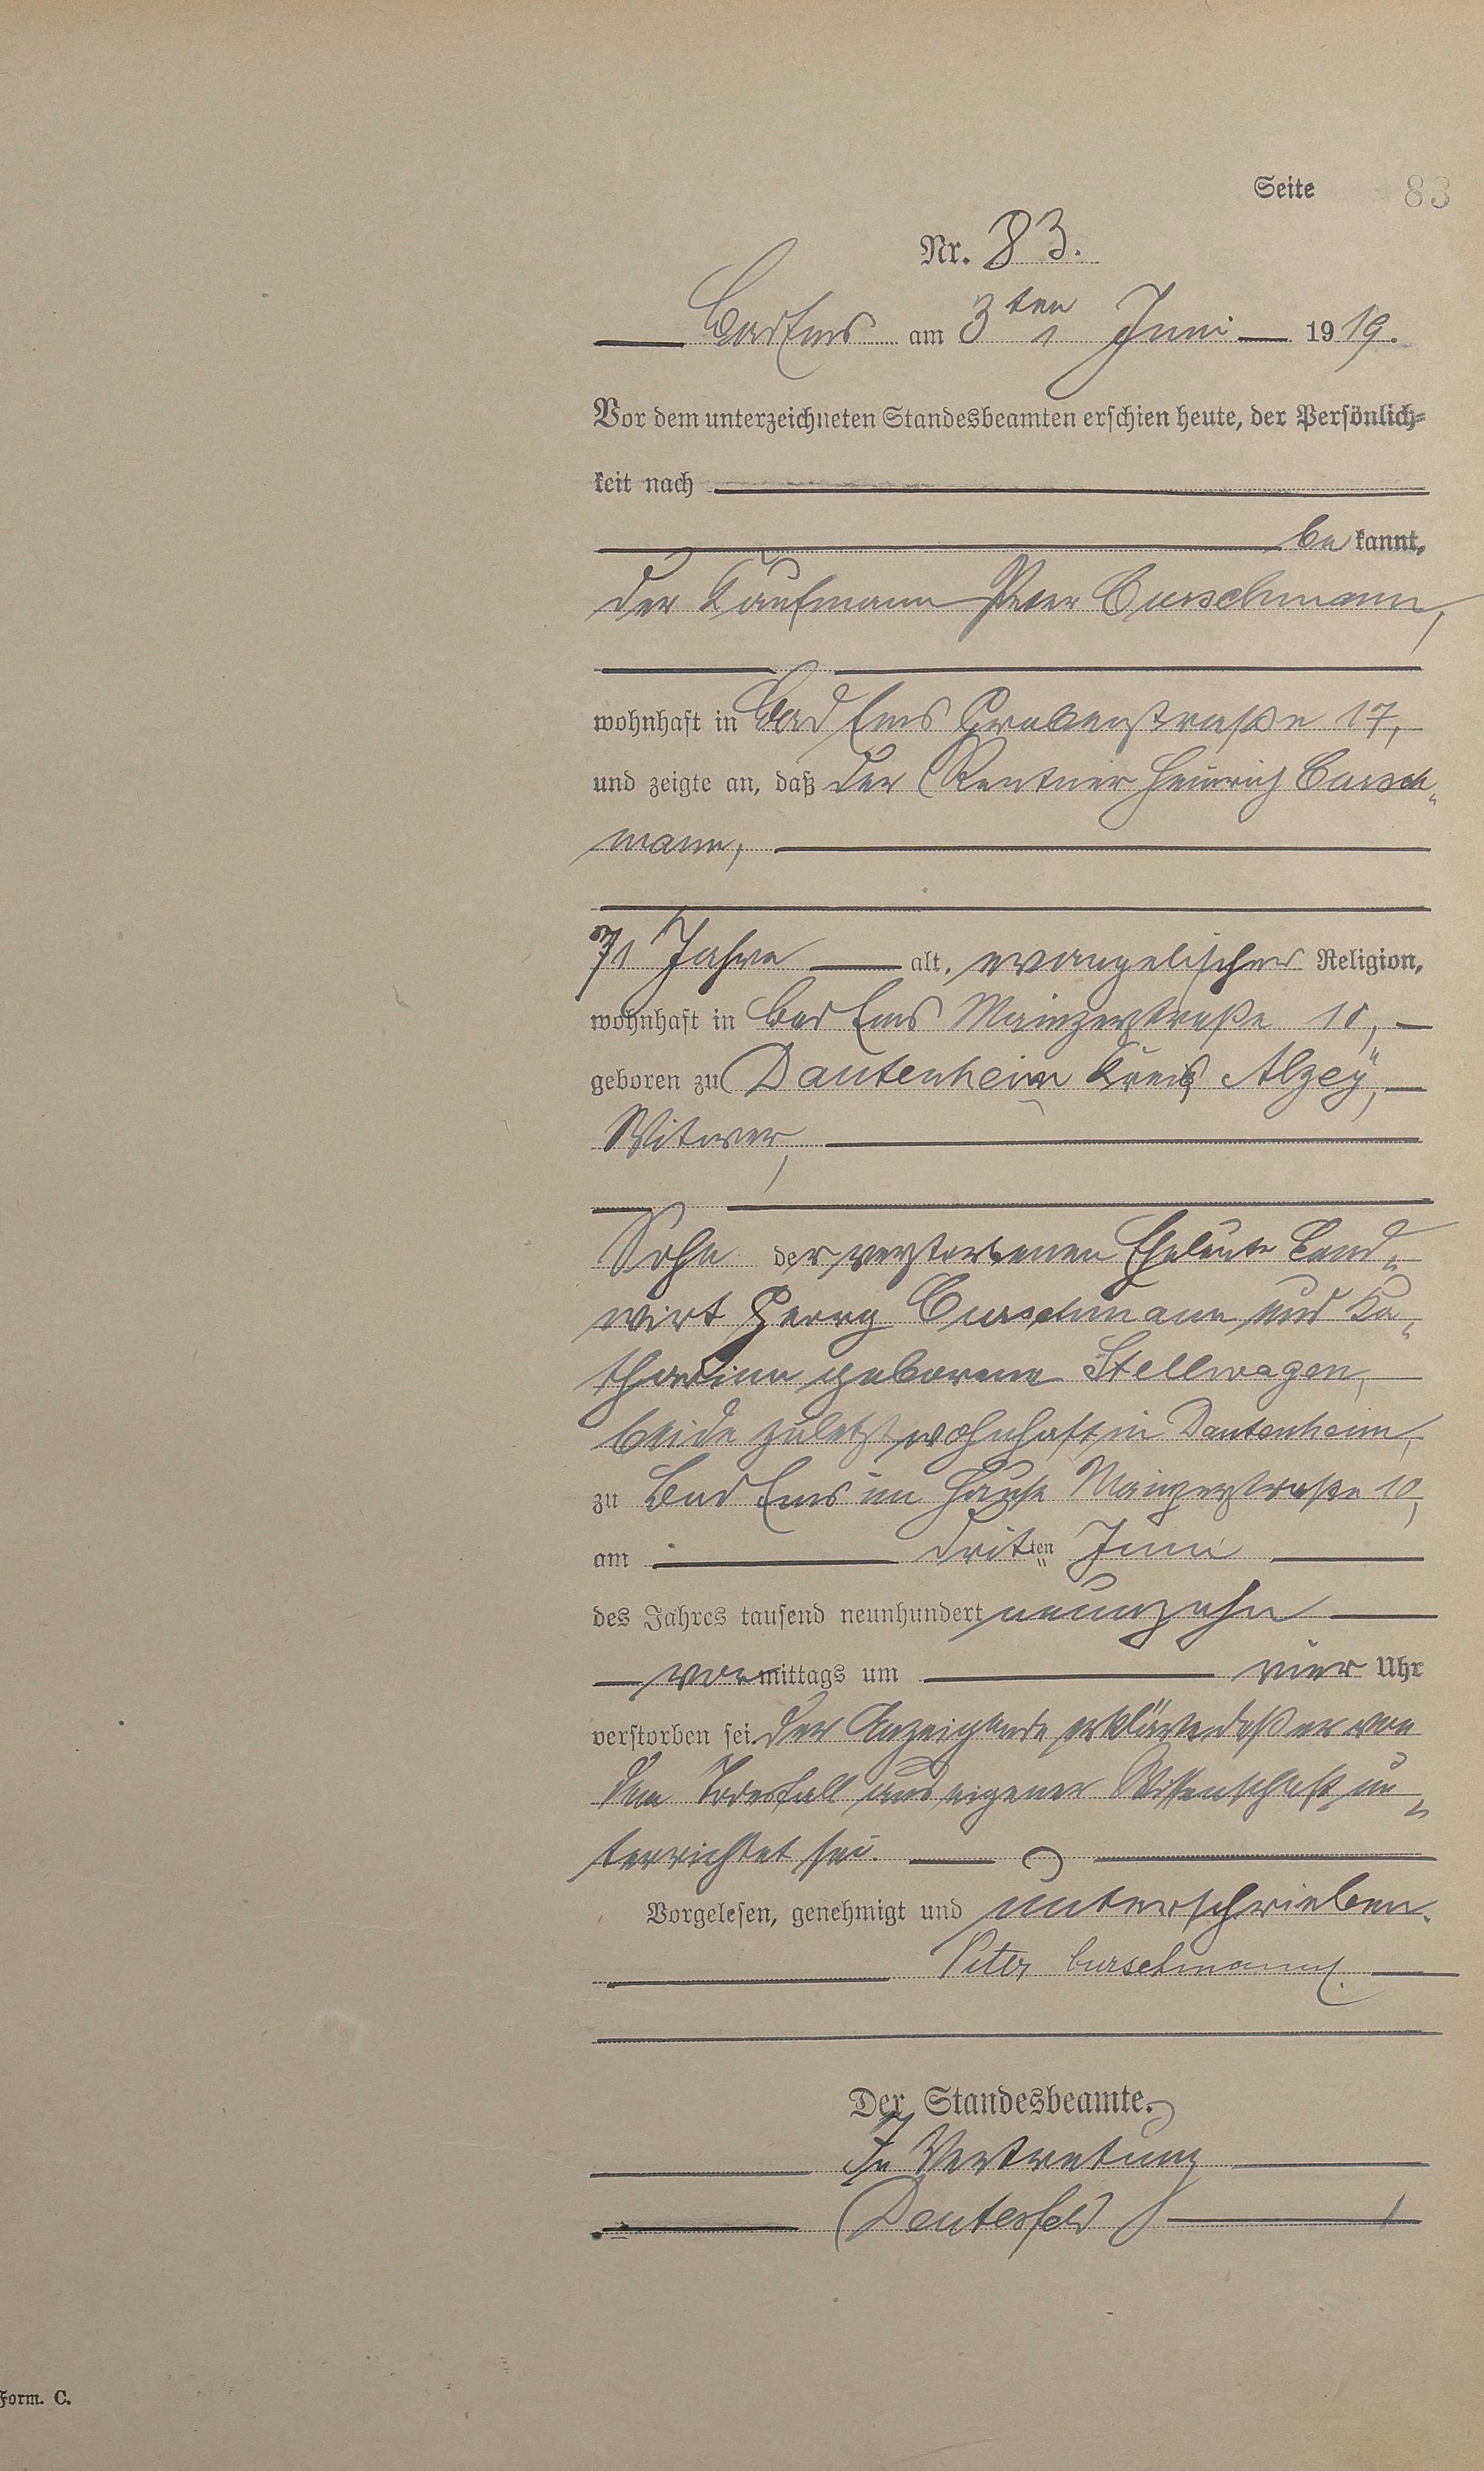 Seite 83
Nr. 83.
Bad Ems am 3ten Juni 1919.
Vor dem unterzeichneten Standesbeamten erschien heute, der Persönlich=
keit nach
bekannt,
der Kaufmann Peter Curschmann,
wohnhaft in Bad Ems Grabenstraße 17,
und zeigte an, daß der Rentner Heinrich Cursch„
mann,
71 Jahre alt, evangelischer Religion,
wohnhaft in Bad Ems Mainzerstraße 10,
geboren zu Dautenheim Kreis Alzey,
Witwer,
Sohn der verstorbenen Eheleute Land„
wirt Georg Curschmann und Ka„
tharina geborene Stellwagen,
beide zuletzt wohnhaft in Dautenheim,
zu Bad Ems im Hause Mainzerstraße 10,
am dritten Juni
des Jahres tausend neunhundert neunzehn
vormittags um vier Uhr
verstorben sei. Der Anzeigende erklärte, daß er von
dem Todesfall aus eigener Wissenschaft un„
terrichtet sei.
Vorgelesen, genehmigt und unterschrieben.
Peter Curschmann.
Der Standesbeamte.
In Vertretung
Form. C.